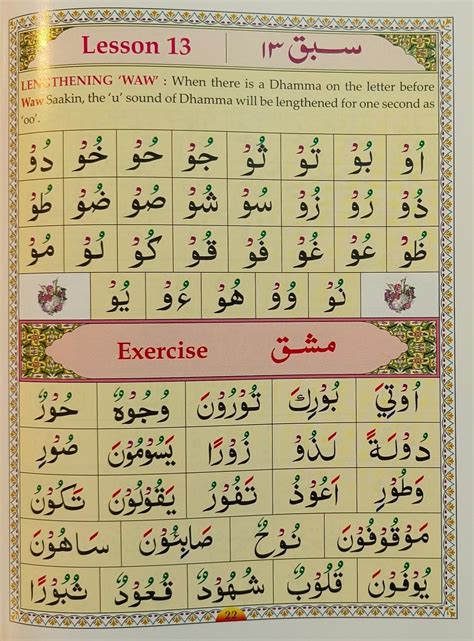 Lesson 13 سبق ۱۳
LENGTHENING 'WAW' : When there is a Dhamma on the letter before
Waw Saakin, the 'u' sound of Dhamma will be lengthened for one second as
'oo'.
اُوْ بُوْ تُوْ ثُوْ جُوْ حُوْ خُوْ دُوْ
ذُوْ رُوْ زُوْ سُوْ شُوْ صُوْ ضُوْ طُوْ
ظُوْ عُوْ غُوْ فُوْ قُوْ كُوْ لُوْ مُوْ
نُوْ وُوْ هُوْ ءُوْ يُوْ
Exercise مشق
اُوْتِيَ بُوْرِكَ تُوْرُوْنَ وُجُوْهٌ حُوْرٌ
دُوْلَةً لَذُوْ زُوْرًا يَسُوْمُوْنَ صُوْرٍ
وَطُوْرِ اَعُوْذُ تَفُوْرُ يَقُوْلُوْنَ تَكُوْنُ
مَوْقُوْفُوْنَ نُوْحٌ صَابِئُوْنَ سَاهُوْنَ
يُوْفُوْنَ قُلُوْبٌ شُهُوْدٌ قُعُوْدٌ ثُبُوْرًا
22